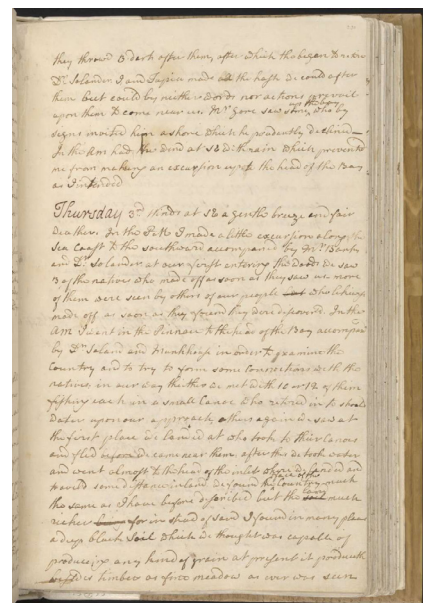 they throw'd 3 darts after them, after which they began to retire
Dr Solander I and Tupia made all the haste we could after
them but could by neither words nor actions prevail
upon them to come near us. Mr Gore saw some up the bay, who by
signs invited him ashore which he prudently declined
In the AM had the wind at SE with rain which prevented
me from making an excursion up the head of the Bay
as I intended
Thursday 3d Winds at SE a gentle breeze and fair
weather. In the PM I made a little excursion along the
Sea Coast to the southward accompaned by Mr Banks
and Dr Solander at our first entering the woods we saw
3 of the natives who made off as soon as they saw us more
of them were seen by others of our people who likewise
made off as soon as they found they were discovered. In the
AM I went in the Pinnace to the head of the Bay accompan'd
by Drs Soland and Munkhouse in order to examine the
Country and to try to form some Connections with the
natives, in our way thither we met with 10 or 12 of them
fishing each in a small Canoe who retired in to shoald
water upon our approach, others again we saw at
the first place we landed at who took to their Canoes
and fled before we came near them, after this we took water
and went almost to the head of the inlet where we landed and
traveld some distance in land we found the face of the Country much
the same as I have before described but the land much
richer for in stead of sand I found in many places
a deep black Soil which we thought was capable of
produceing any kind of grain at present it produceth
besides timber as fine meadow as ever was seen